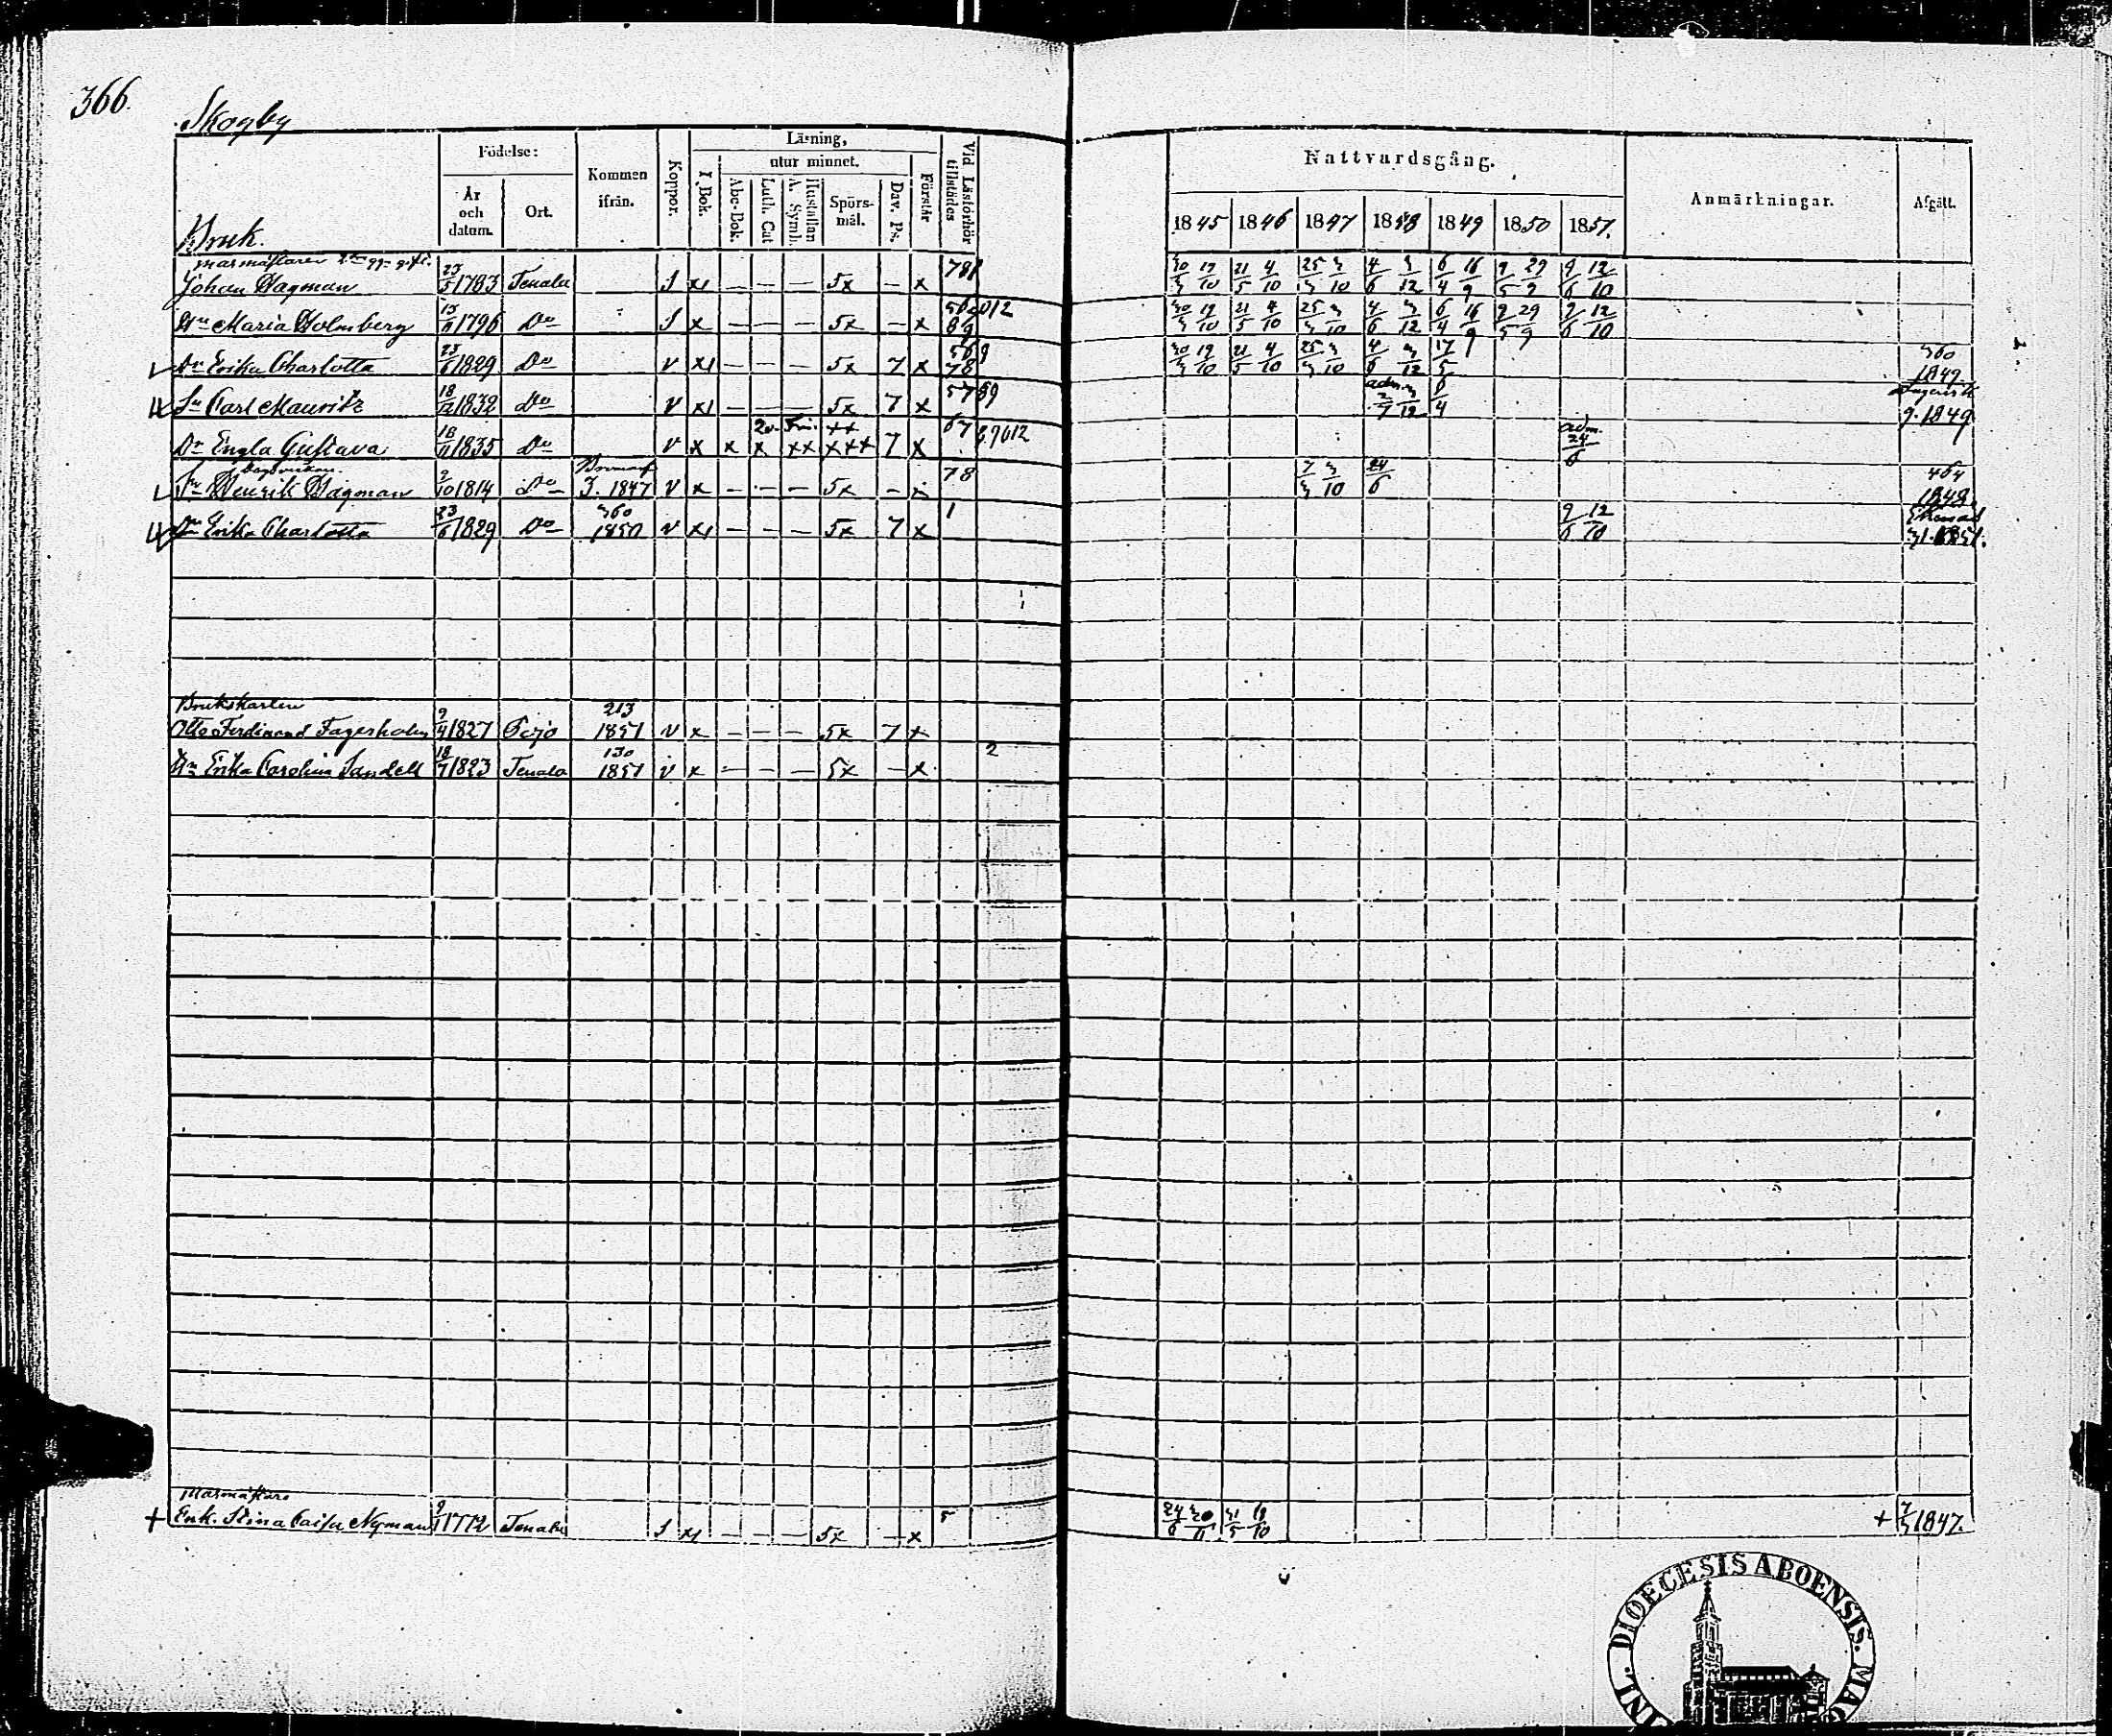 366.
Skogby
Bruk.
Födelse:
År och datum.
Ort.
Kommen ifrån.
Koppor.
Läsning,
utur minnet.
I Bok.
Abc-Bok.
Luth. Cat
Hustaflan A. Symb.
Spörsmål.
Dav. Ps.
Förstår
Vid Läsförhör tillstädes
Nattvardsgång.
1845 1846 1847 1848 1849 1850 1851.
Anmärkningar.
Afgått.
Masmästaren
Johan Hagman 23/5 1793 Tenala S x — — — 5x — x 30/3 19/10 21/5 4/10 25/3 3/10 4/6 3/12 6/4 16/9 9/5 29/9 9/6 12/10
Hu Maria Holmberg 15/11 1796 Do S x — — — 5x — x 30/3 19/10 21/5 4/10 25/3 3/10 4/6 3/12 6/4 16/9 9/5 29/9 9/6 12/10
Dr Erika Charlotta 23/6 1829 Do v x — — — 5x 7 x 30/3 19/10 21/5 4/10 25/3 3/10 4/6 3/12 17/5 360 1849.
Sn Carl Mauritz 18/12 1832 Do v x — — — 5x 7 x adm. 2/7 3/12 6/4 9. 1849
Dr Engla Gustava 18/11 1835 Do v x x x xx xxx 7 x adm. 24/6
Henrik Hagman 9/10 1814 Do 1847 v x — — — 5x — x 78 7/3 3/10 24/6 464 1848
Dr Erika Charlotta 23/6 1829 Do 360 1850 v x — — — 5x 7 x 1 9/6 12/10 Ekenäs 31. 1851.
Brukskarlen
Otto Ferdinand Fagerholm 9/4 1827 Pojo 213 1851 v x — — — 5x 7 x
Hu Erika Carolina Sandell 18/7 1823 Tenala 130 1851 v x — — — 5x — x 2
Masmästare
+ Enk. Stina Caisa Nyman 9/1 1772 Tenala S x — — — 5x — x 5 24/6 31/5 18/10 + 7/3 1847.
DIOECESIS ABOENSIS.